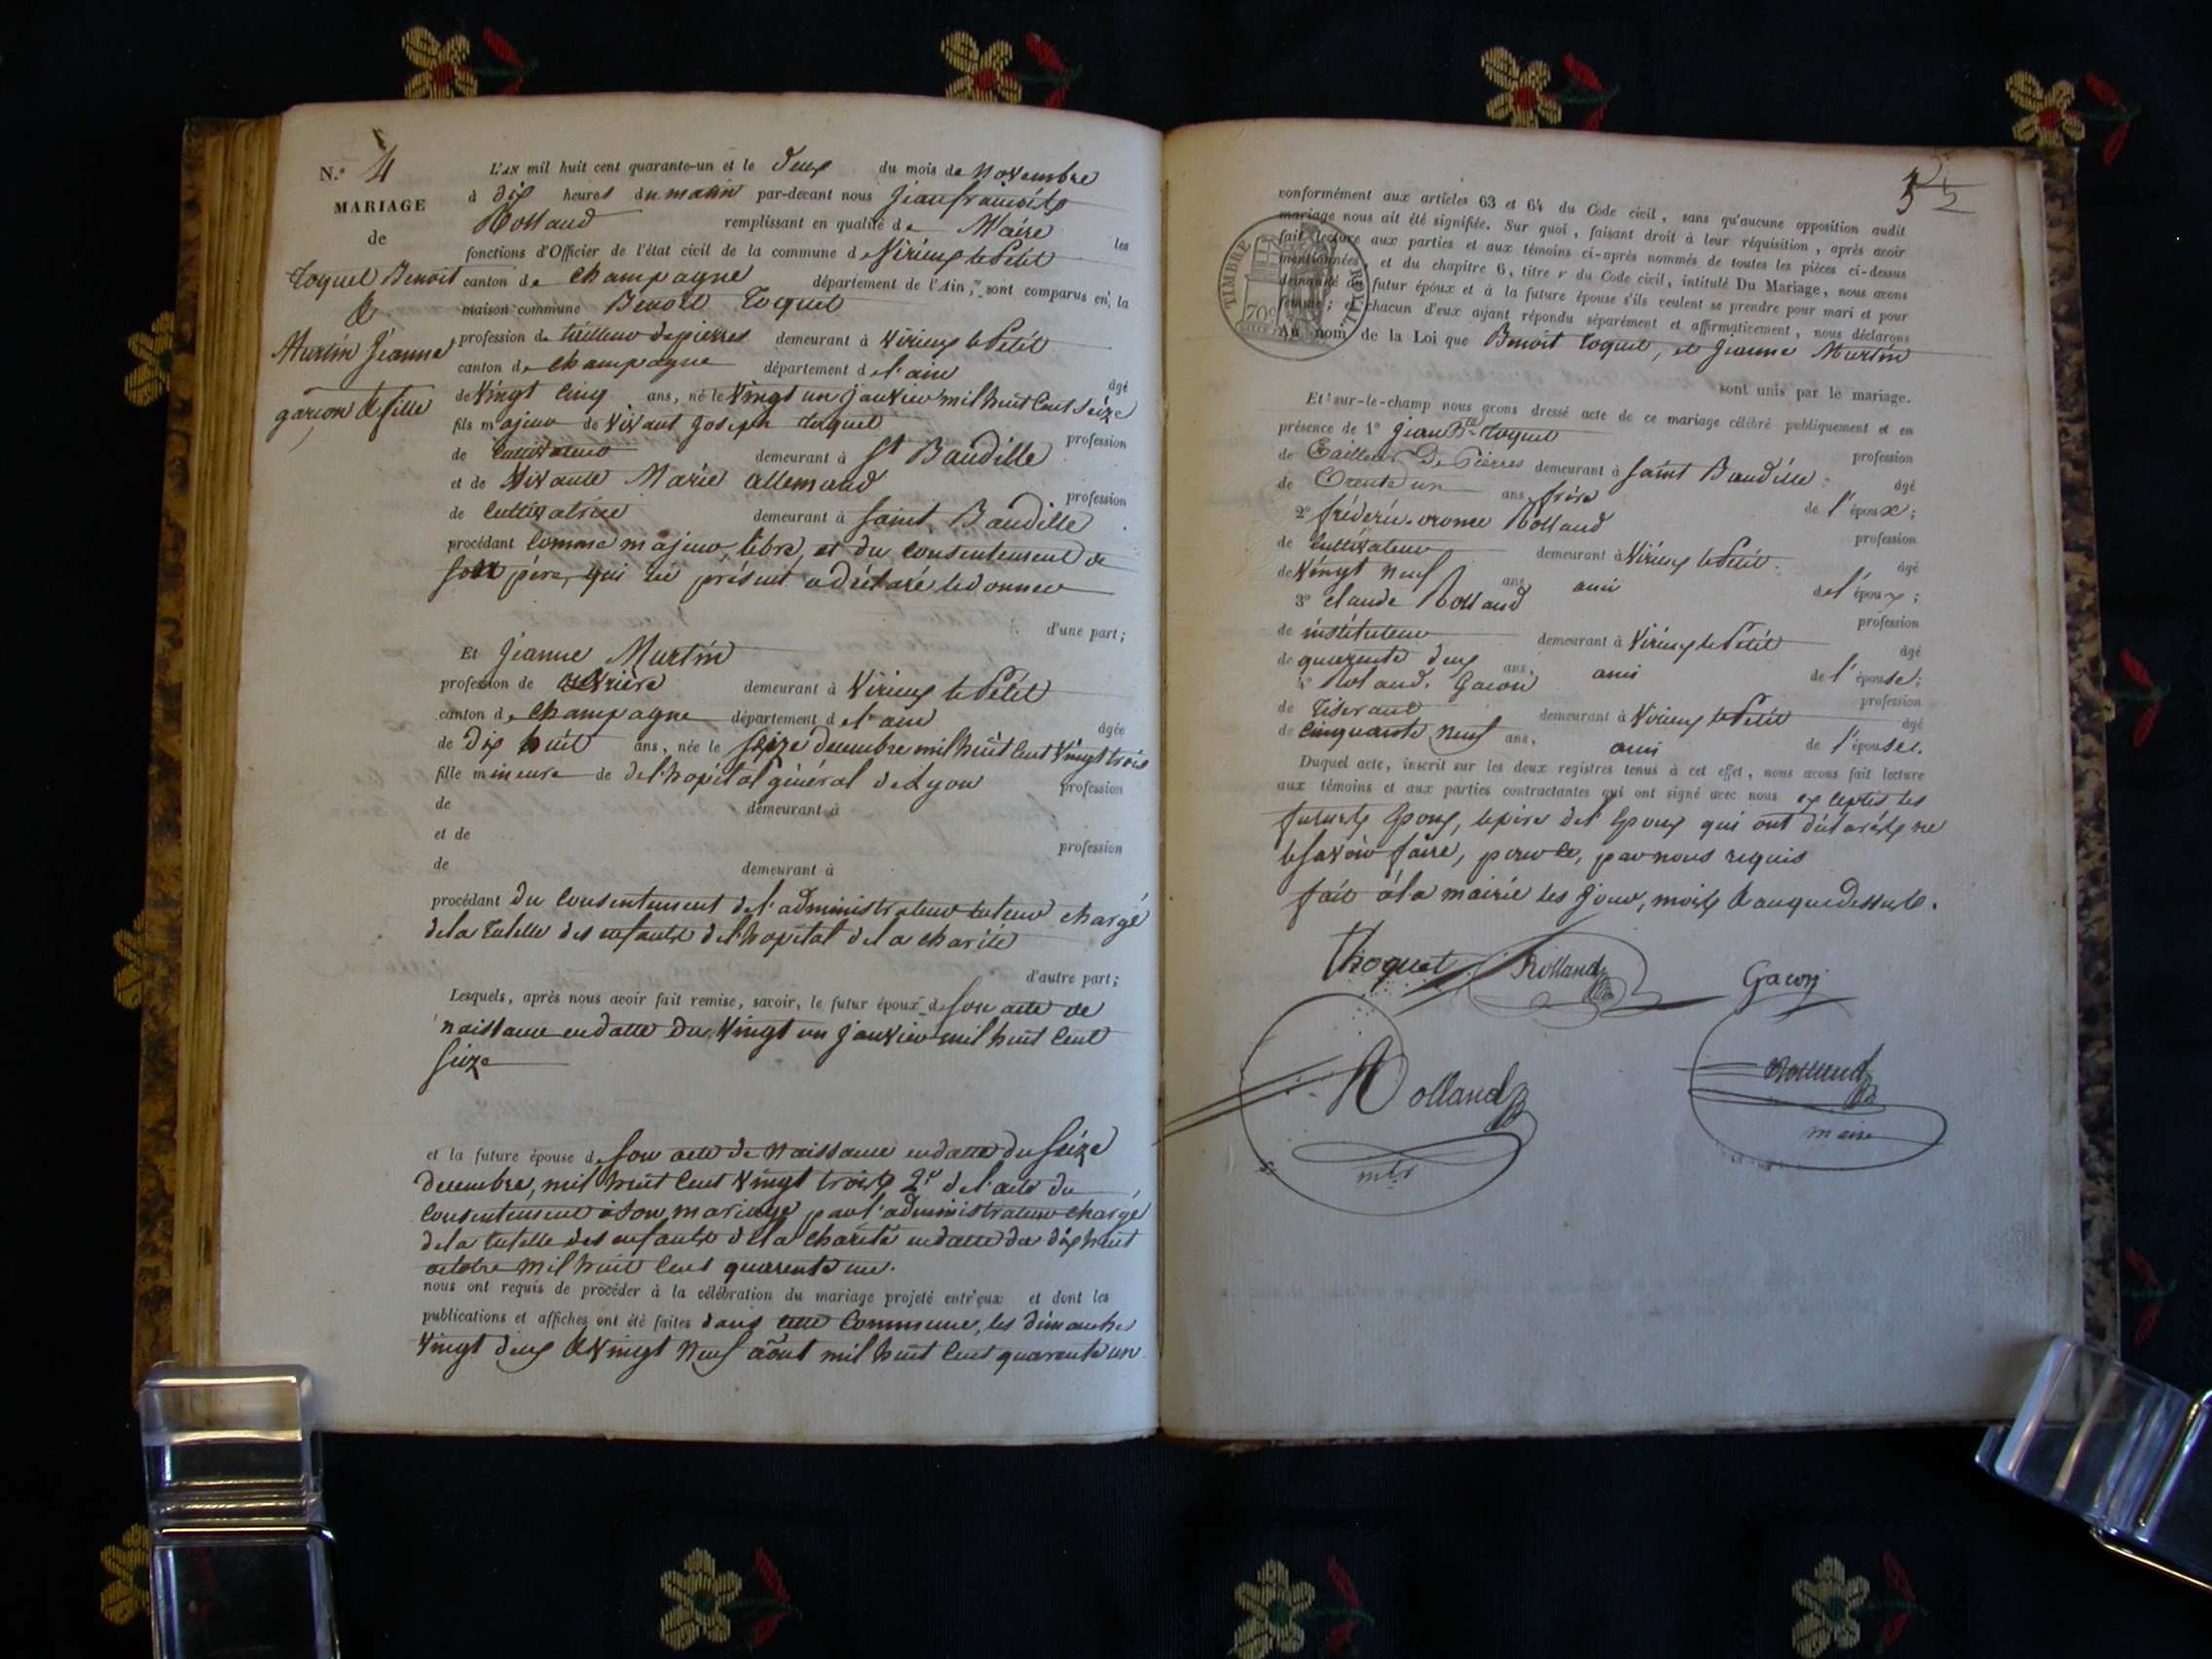 N.° 4
MARIAGE
de
Toquet Benoit
&
Martin Jeanne
garcon & fille
L'AN mil huit cent quarante-un et le deux du mois de novembre
à dix heures du matin par-devant nous jean françois
Rolland remplissant en qualité de Maire les
fonctions d'Officier de l'état civil de la commune de Virieux le Petit
canton de champagne département de l'Ain, sont comparus en la
maison commune Benoit Toquet
profession de tailleur de pierres demeurant à Virieux le Petit
canton de champagne département de l'ain âgé
de Vingt cinq ans, né le Vingt un janvier mil huit cent seize
fils majeur de Vivant joseph toquet profession
de cultivateur demeurant à St Baudille
et de Vivante Marie allemand profession
de cultivatrice demeurant à saint Baudille
procédant comme majeur, libre, et du consentement de
son père, qui ici présent a déclaré le donner
d'une part;
Et jeanne Martin
profession de ouvrière demeurant à Virieux le Petit
canton de champagne département de l'ain âgée
de dix huit ans, née le seize decembre mil huit cent Vingt trois
fille mineure de de l'hopital général de Lyon profession
de demeurant à
et de profession
de demeurant à
procédant du consentement de l'administrateur tuteur chargé
de la tutelle des enfants de l'hopital de la charité
d'autre part;
Lesquels, après nous avoir fait remise, savoir, le futur époux de son acte de
naissance en datte du Vingt un janvier mil huit cent
seize
et la future épouse de son acte de naissance en datte du seize
decembre, mil huit cent Vingt trois, 2° de l'acte du
consentement à son mariage par l'administrateur chargé
de la tutelle des enfants de la charité en datte du dix huit
octobre mil huit cent quarente un.
nous ont requis de procéder à la célébration du mariage projeté entr'eux et dont les
publications et affiches ont été faites dans cette commune, les dimanches
vingt deux & Vingt neuf août mil huit cent quarente un
conformément aux articles 63 et 64 du Code civil, sans qu'aucune opposition audit
mariage nous ait été signifiée. Sur quoi, faisant droit à leur réquisition, après avoir
fait lecture aux parties et aux témoins ci-après nommés de toutes les pièces ci-dessus
mentionnées, et du chapitre 6, titre v du Code civil, intitulé Du Mariage, nous avons
demandé au futur époux et à la future épouse s'ils veulent se prendre pour mari et pour
femme; chacun d'eux ayant répondu séparément et affirmativement, nous déclarons
Au nom de la Loi que Benoit Toquet, et Jeanne Martin
sont unis par le mariage.
TIMBRE ROYAL
70c
Et sur-le-champ nous avons dressé acte de ce mariage célébré publiquement et en
présence de 1° jean Bte Toquet profession
de Tailleur De Pierres demeurant à saint Baudille âgé
de Trente un ans frère de l'époux;
2° fréderic Rolland profession
de cultivateur demeurant à Virieux le Petit âgé
de Vingt neuf ans ami de l'époux;
3° claude Rolland profession
de instituteur demeurant à Virieux le Petit âgé
de quarente deux ans, ami de l'épouse;
4° Roland Gacon profession
de Tiserant demeurant à Virieux le Petit âgé
de cinquante neuf ans, ami de l'épouse.
Duquel acte, inscrit sur les deux registres tenus à cet effet, nous avons fait lecture
aux témoins et aux parties contractantes qui ont signé avec nous exceptés les
futurs Epoux, le père de l'Epoux qui ont déclarés ne
le savoir faire, pour ce, par nous requis
fait à la mairie les jour, mois & an que dessus.
Thoquet Rolland Gacon
Rolland Rolland
maire